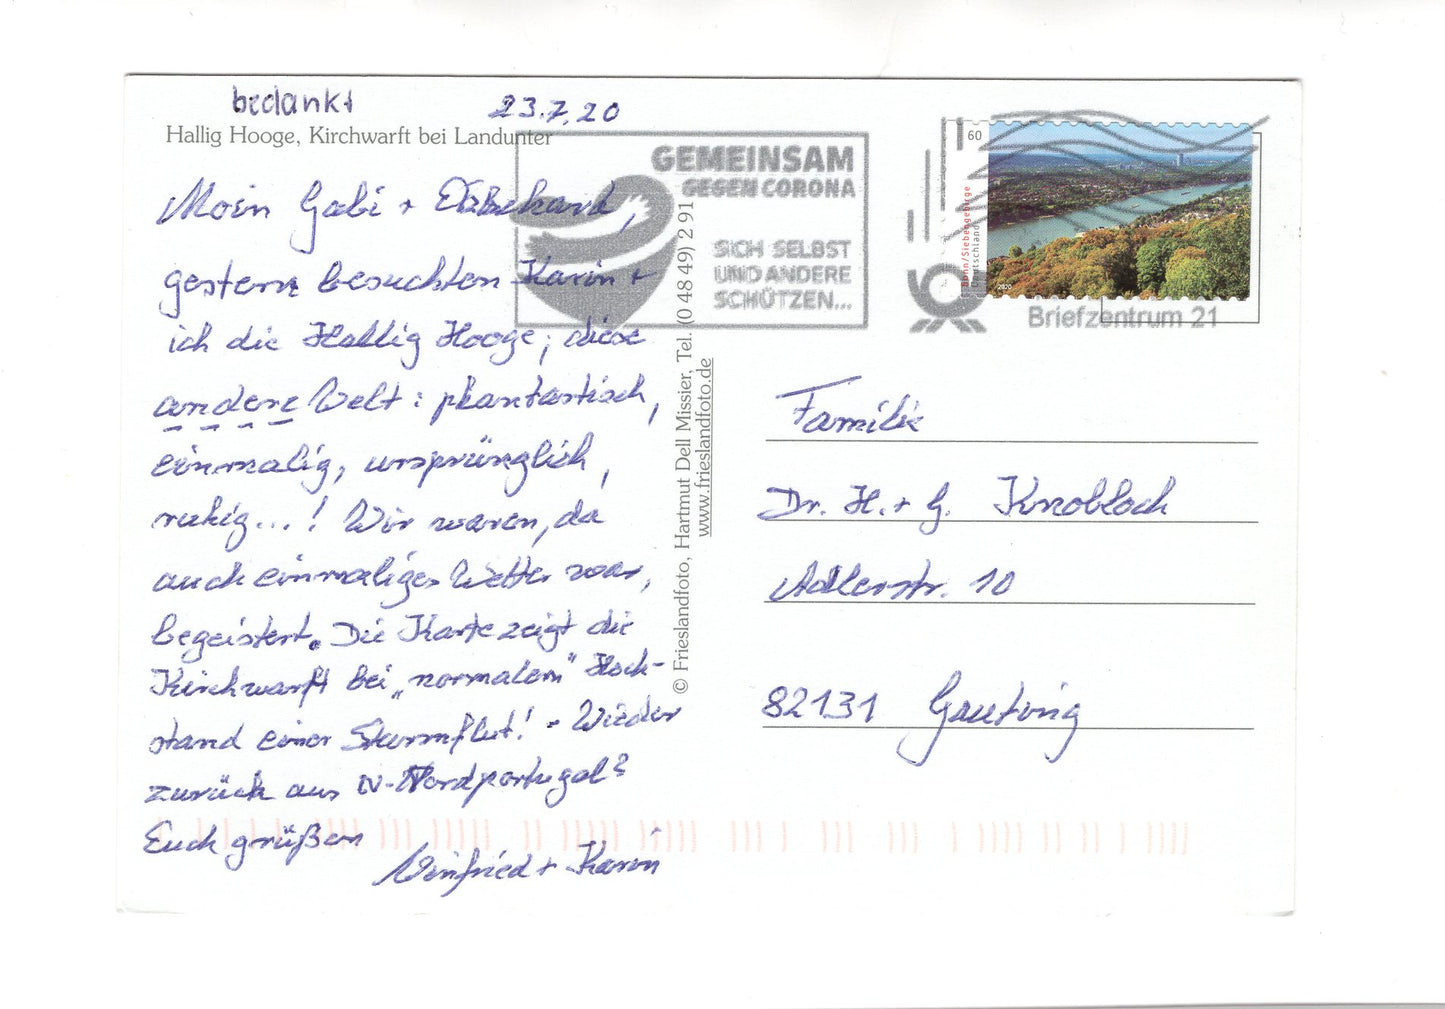 bedankt
23.7.20
Hallig Hooge, Kirchwarft bei Landunter
Moin Gabi +
gestern besuchten Karin +
ich die Hallig Hooge, diese
andere Welt: phantastisch,
einmalig, ursprünglich,
ruhig...! Wir waren, da
auch einmaliges Wetter war,
begeistert. Die Karte zeigt die
Kirchwarft bei „normalem" Hoch-
stand einer Sturmflut! - Wieder
zurück aus Nordportugal?
Euch grüßen
Winfried + Karin
© Frieslandfoto, Hartmut Dell Missier, Tel. (0 48 49) 2 91
www.frieslandfoto.de
GEMEINSAM
GEGEN CORONA
SICH SELBST
UND ANDERE
SCHÜTZEN...
60
Bonn/Siebengebirge
Deutschland
2020
Briefzentrum 21
Familie
Dr. H. + G. Knobloch
Adlerstr. 10
82131 Gauting